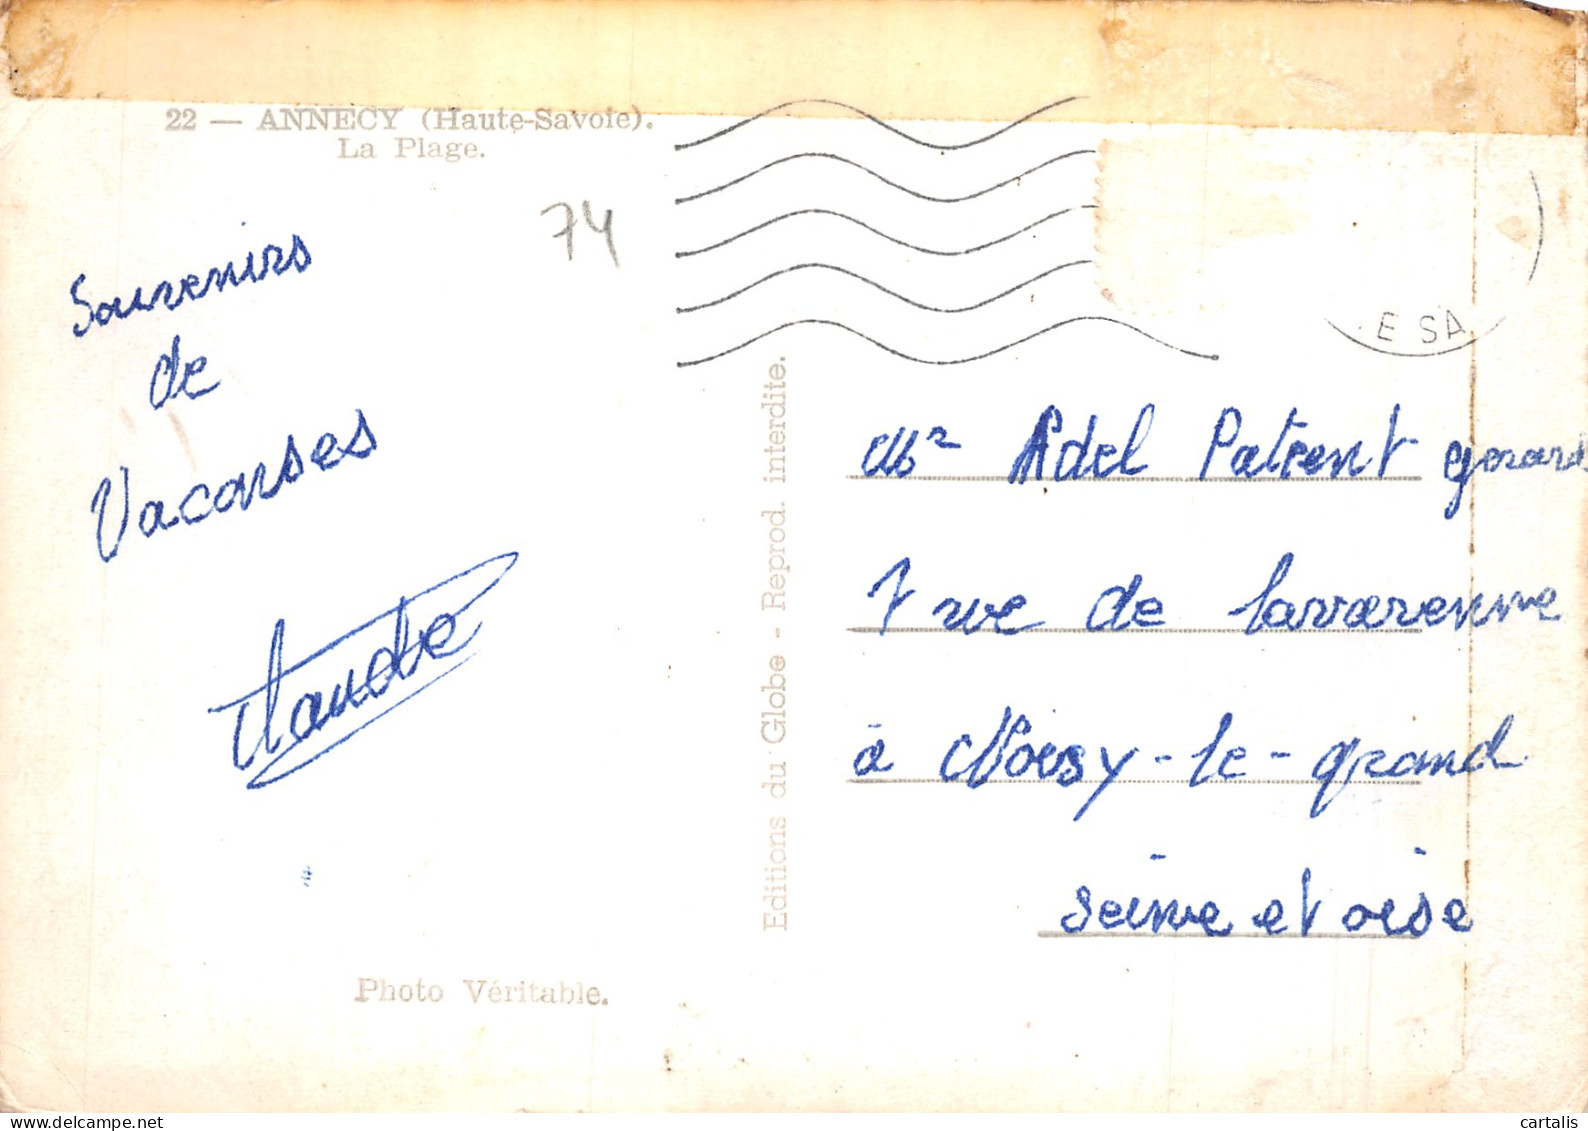 22 — ANNECY (Haute-Savoie).
La Plage.
74
Souvenirs
de
Vacanses
Claude
Photo Véritable.
Editions du Globe - Reprod. interdite.
E SA
Mr Adel Patrent gerard
7 rue de lavarenne
à Noisy-le-grand
Seine et oise
cartalis